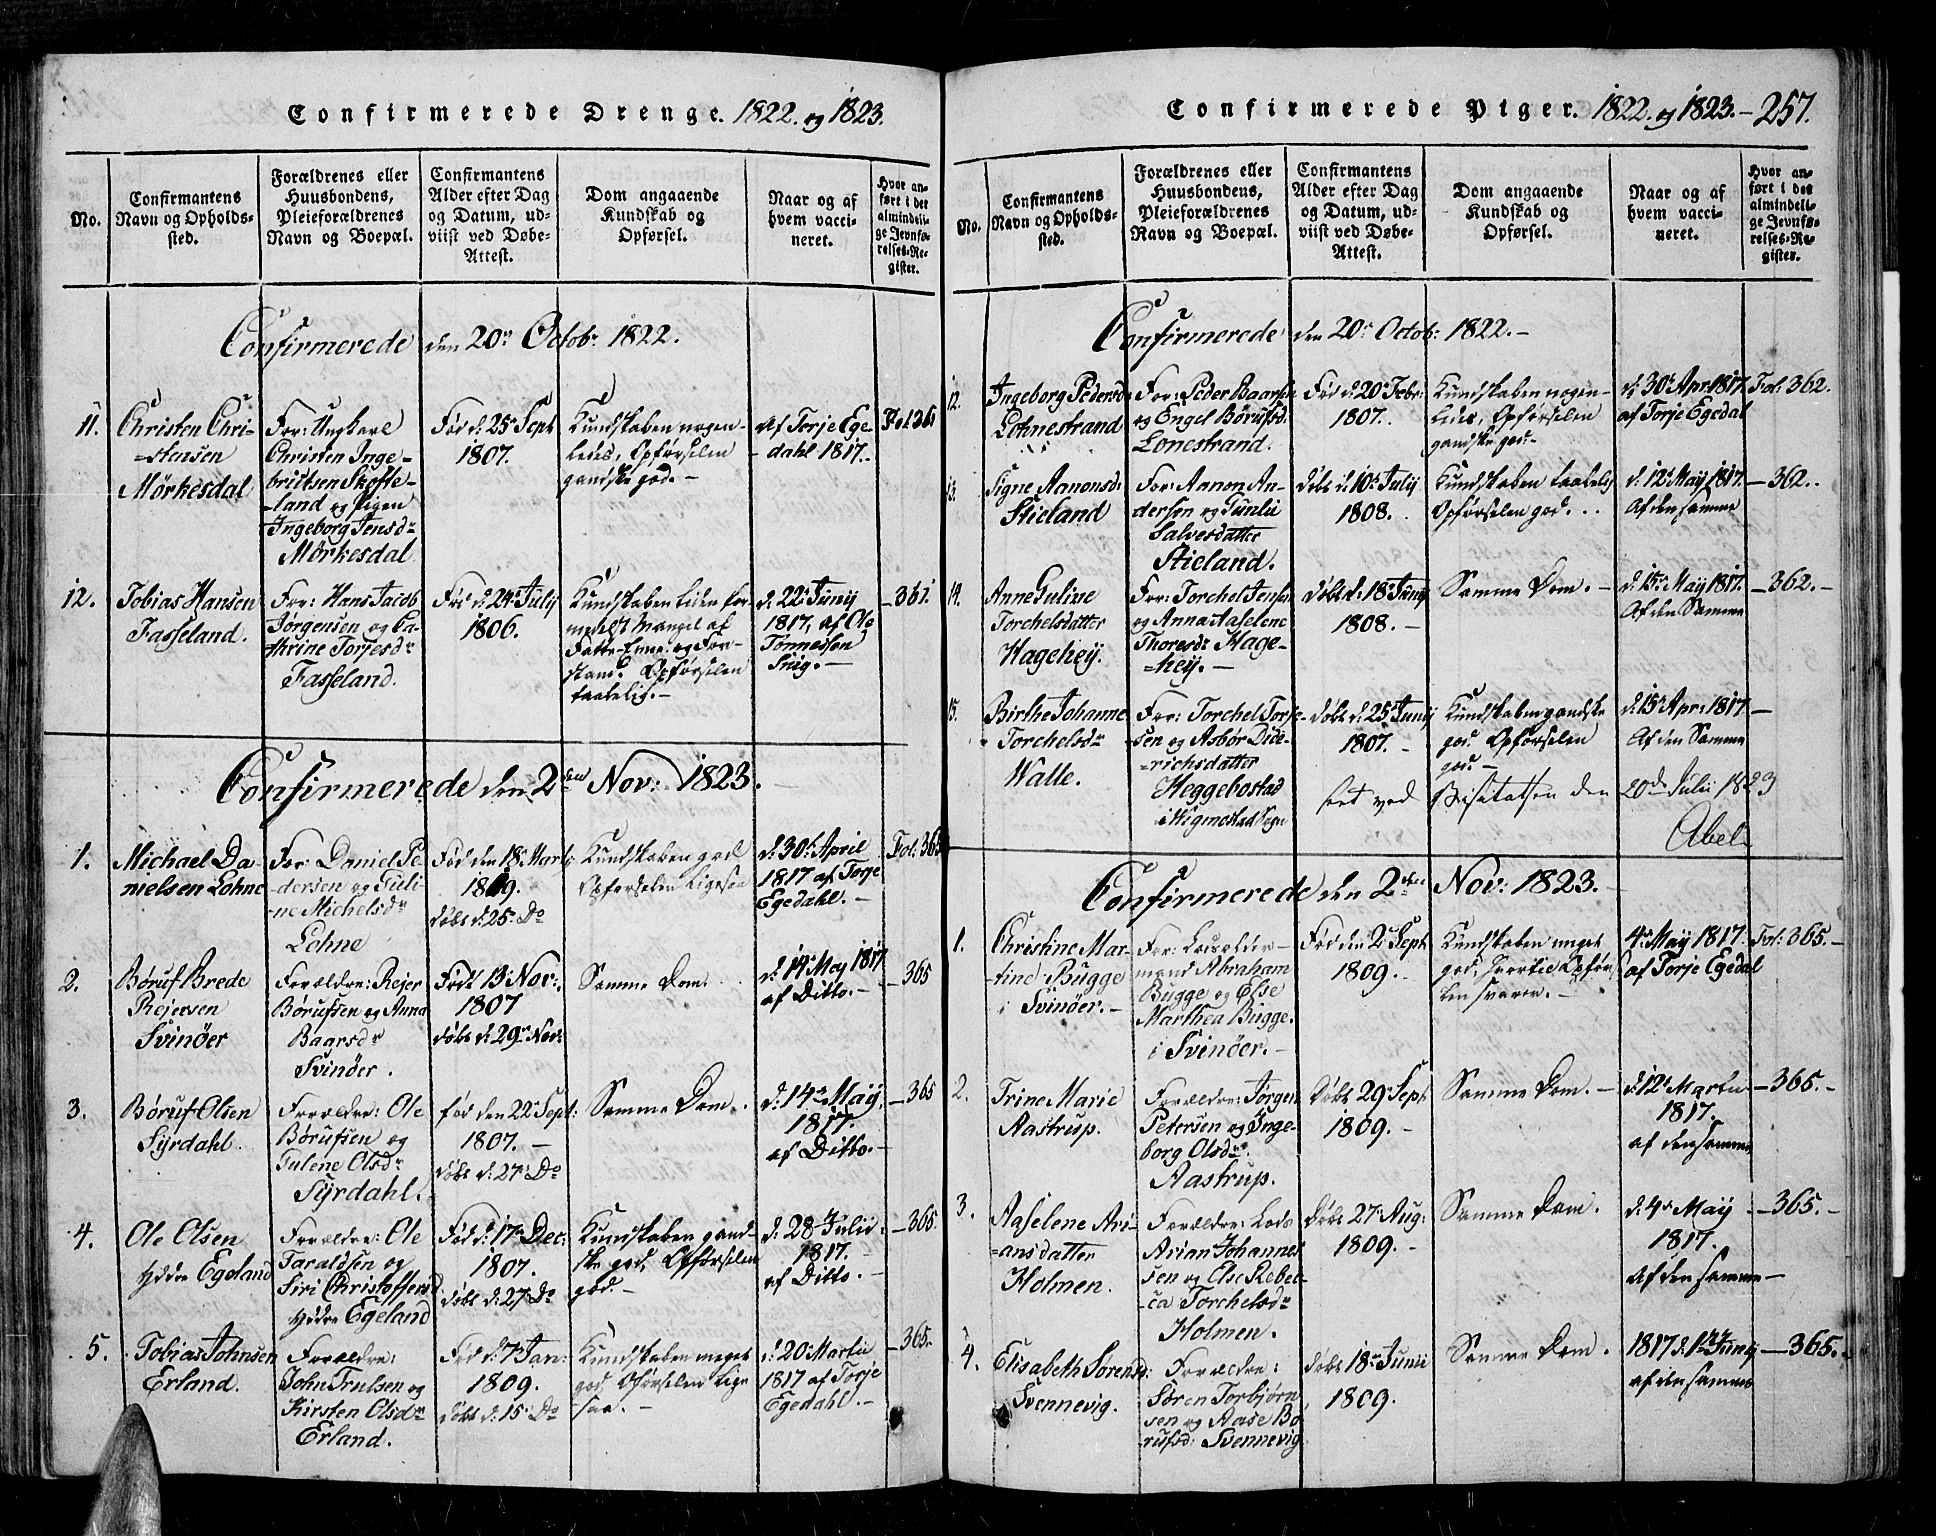 Confirmerede Drenge. 1822. og 1823.
No.
Confirmantens
Navn og Opholds-
sted.
Forældrenes eller
Huusbondens,
Pleieforældrenes
Navn og Boepæl.
Confirmantens
Alder efter Dag
og Datum, ud-
viist ved Døbe-
Attest.
Dom angaaende
Kundskab og
Opførsel.
Naar og af
hvem vacci-
neret.
Hvor an-
ført i det
almindeli-
ge Jevnfø-
relses-Re-
gister.
Confirmerede den 20de Octobr 1822.
11.
Christen Chri-
stensen
Mørkesdal
For: Ungkarl
Christen Inge-
brictsen Skofte-
land og Pigen
Ingeborg Jensdr
Mørkesdal
Fød d: 25de Sept
1807.
Kundskaben nogen-
ledes, Opførselen
gandske god. –
Af Torje Ege-
dahl 1817.
Fol: 361
12.
Tobias Hansen
Fasseland.
For: Hans Jacob
Jørgensen og Ca-
thrine Torjesdr
Fasseland.
Fød d: 24de Julij
1806.
Kundskaben liden for-
medelst Mangel af
Fatte-Evne og For-
stand. Opførselen
taalelig. –
d: 22de Junij
1817, af Ole
Tønnessen
Snig. –
– 361.
Confirmerede den 2den Nov: 1823.
1.
Michael Da-
nielsen Lohne
For: Daniel Pe-
dersen og Juli-
ne Michelsdr
Lohne
Fød den 18de Marts
1809.
døbt d: 25de Do
Kundskaben god
Opførselen Ligesaa
d: 30te April
1817 af Torje
Egedahl. –
Fol: 365
2.
Børuf Brede
Rejersen
Svinøer
Forældre: Rejer
Børufsen og Anna
Baarsdr
Svinøer.
Fød d: 13 Nov:
1807
døbt d: 29de Nov:
Samme Dom.
d: 14de May 1817
af Ditto. –
– 365
3.
Børuf Olsen
Syrdahl.
Forældre: Ole
Børufsen og
Julene Olsdr
Syrdahl.
fød den 22de Sept:
1807. –
døbt d: 27de Do
Samme Dom.
d: 14de May
1817.
af Ditto. –
– 365
4.
Ole Olsen
Yddre Egeland
Forældre: Ole
Taraldsen og
Siri Christoffersd
Yddre Egeland
Fød d: 17de Dec:
1807.
døbt d: 27de Do
Kundskaben gand-
ske god, Opførselen
god. –
d: 28 Julii
1817. –
af Ditto. –
– 365.
5.
Tobias Johnsen
Erland.
Forældre:
John Trulsen og
Kirsten Olsdr
Erland.
Fød d: 7de Jan:
1809.
døbt d: 15de Do
Kundskaben meget
god, Opførselen Lige
saa. –
d: 20 Martii
1817 af Torje
Egedahl. –
– 365.
Confirmerede Piger. 1822. og 1823. – 257.
No.
Confirmantens
Navn og Opholds-
sted.
Forældrenes eller
Huusbondens,
Pleieforældrenes
Navn og Boepæl.
Confirmantens
Alder efter Dag
og Datum, ud-
viist ved Døbe-
Attest.
Dom angaaende
Kundskab og
Opførsel.
Naar og af
hvem vacci-
neret.
Hvor an-
ført i det
almindeli-
ge Jevnfø-
relses-Re-
gister.
Confirmerede den 20de Octob: 1822. –
12.
Ingeborg Pedersd:
Lohnestrand
For: Peder Baarsen
og Engel Børufsd:
Lonestrand.
Fød d: 20de Febr:
1807.
Kundskaben nogen-
ledes, Opførselen
gandske god. –
d: 30te Apr: 1817.
af Torje Egedal
Fol: 362.
13.
Signe Aanonsd:
Stieland
For: Aanon An-
dersen og Gunlii
Salvesdatter
Stieland.
døbt d: 10de Julij
1808.
Kundskaben taalelig
Opførselen god.
d: 12te May 1817.
Af den samme
– 362.
14.
Anne Guline
Torchelsdatter
Hagehej.
For: Torchel Jensen
og Anna Aaselene
Thoresdr Hage-
hej. –
døbt d: 18de Junij
1808. –
Samme Dom. –
d: 15de May 1817.
Af den Samme
– 362. –
15.
Birthe Johanne
Torchelsdr
Walle.
For: Torchel Torje-
sen og Asbør Dide-
richsdatter
Heggebostad
i Wigmostad Sogn
døbt d: 25de Junij
1807. –
Kundskaben gandske
god. Opførselen
god. –
d: 15de Apr: 1817 –
Af den Samme
seet ved Visitatsen den 20de Julii 1823
Abel
Confirmerede den 2den Nov: 1823. –
1.
Christine Mar-
tine Bugge
i Svinøer. –
For: Lodsolder-
mand Abraham
Bugge og Else
Marthea Bugge.
i Svinøer. –
Fød den 2de Sept.
1809. –
Kundskaben meget
god,
4de May 1817.
af Torje Egedal
Fol: 365. –
2.
Trine Marie
Aastrup.
Forældre: Jørgen
Petersen og Inge-
borg Olsdr
Aastrup.
Døbt 29de Sept:
1809. –
Samme Dom. –
d: 12te Martii
1817.
af den samme
– 365. –
3.
Aaselene Ari-
ansdatter
Holmen.
Forældre: Lods
Arian Johannes-
sen og Else Rebec-
ca Torchelsdr
Holmen.
Døbt 27de Aug:
1809. –
Samme Dom.
d: 4de May
1817.
Af den samme –
– 365. –
4.
Elisabeth Sørensd:
Svennevig.
Forældre:
Søren Torbjørn-
sen og Aase Bø-
rufsd: Svennevig
døbt 18de Junii
1809.
Samme Dom.
1817 d. 1ste Junij
af den samme
– 365.